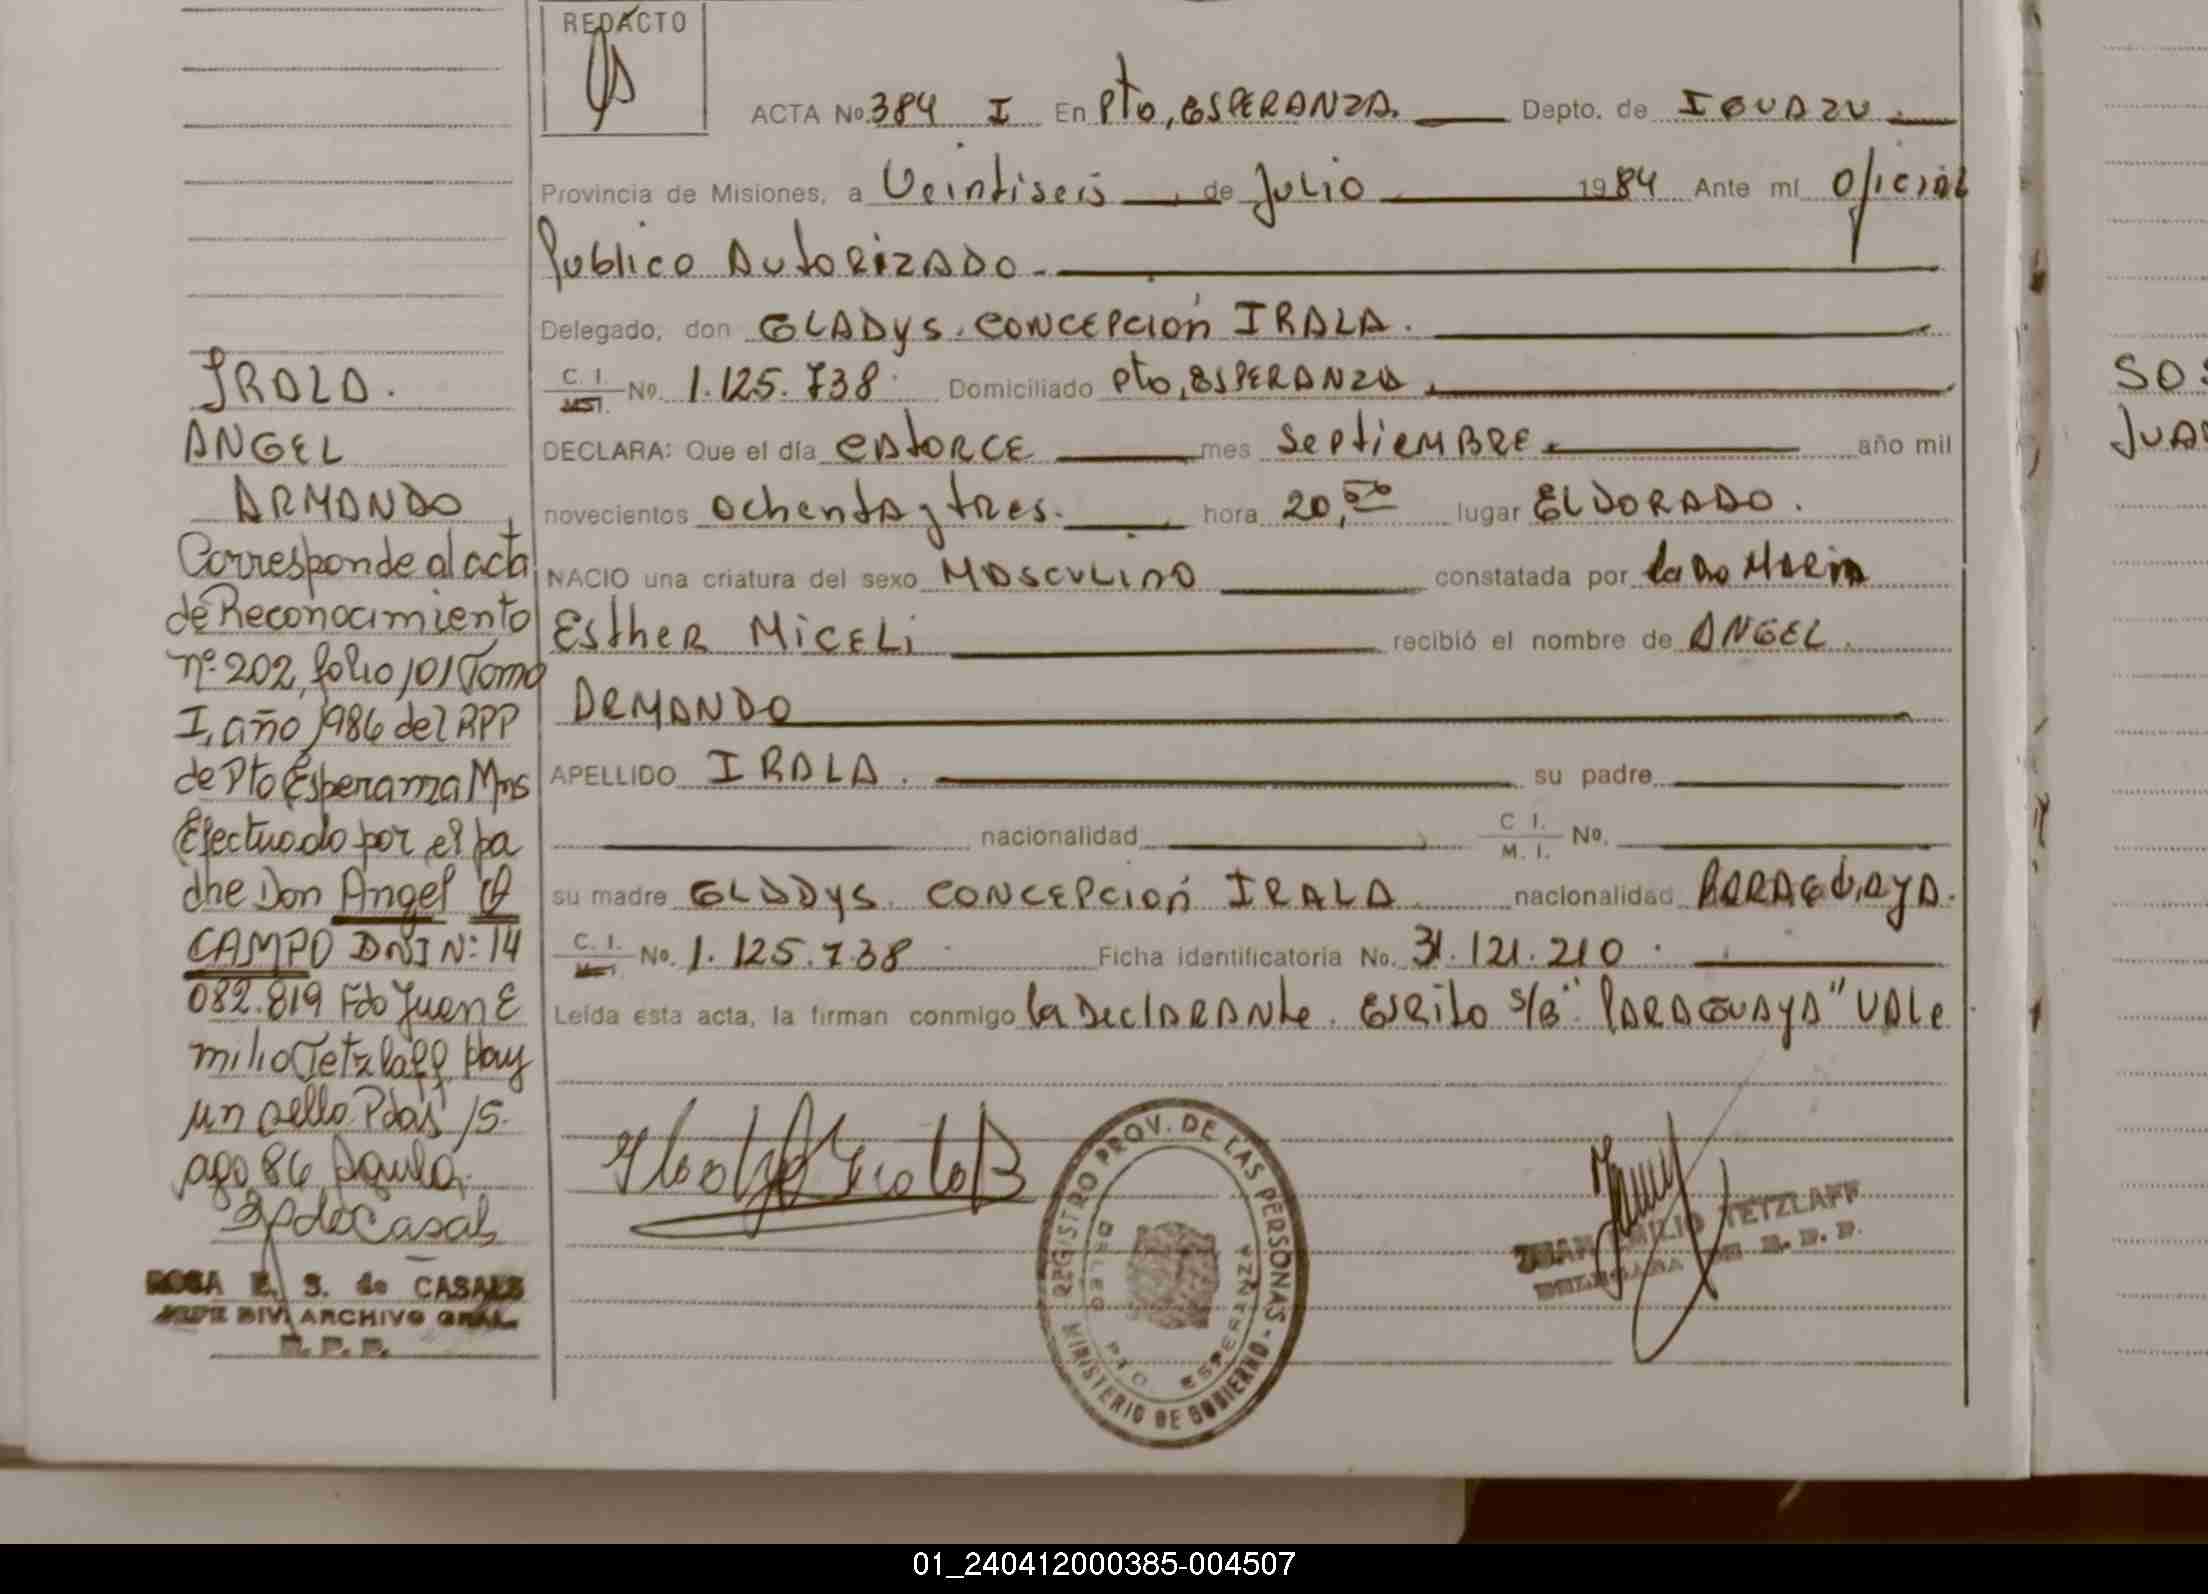 REDACTO
ACTA No. 384 I En Pto, ESPERANZA. Depto. de IGUAZU.
Provincia de Misiones, a Veintiseis de Julio 1984 Ante mí Oficial
Publico AutoRizADO.
Delegado, don GLADYS CONCEPCIÓN IRALA.
C. I. No. 1.125.738 Domiciliado Pto, ESPERANZA
DECLARA: Que el día CATORCE mes SeptiEMBRE. año mil
novecientos ochenta y tres. hora 20, lugar ELDORADO.
NACIO una criatura del sexo MASCULINO constatada por
EstheR MiCELi recibió el nombre de ANGEL
ARMANDO
APELLIDO IRALA. su padre
nacionalidad C I. M. I. No.
su madre GLADYS CONCEPCIÓN IRALA nacionalidad PARAGUAYA.
C. I. No. 1.125.738 Ficha identificatoria No. 31.121.210
Leída esta acta, la firman conmigo la DeclARANte. EsRito S/B: "PARAGUAYA" VALe
IRALA.
ANGEL
ARMANDO
Corresponde al acta
de Reconocimiento
nº 202, folio 101 Tomo
I, año 1986 del RPP
de Pto Esperanza Mns
Efectuado por el pa
dre Don Angel
CAMPO DNI N: 14
082.819 Fdo Juan E
milio Tetzlaff Hay
un sello Pdas 15.
ago 86
ROSA E. S. de CASALS
JEFE DIV. ARCHIVO GRAL.
R. P. P.
REGISTRO PROV. DE LAS PERSONAS - MINISTERIO DE GOBIERNO -
DELEG. PTO. ESPERANZA
JUAN EMILIO TETZLAFF
SOS
JUA
01_240412000385-004507